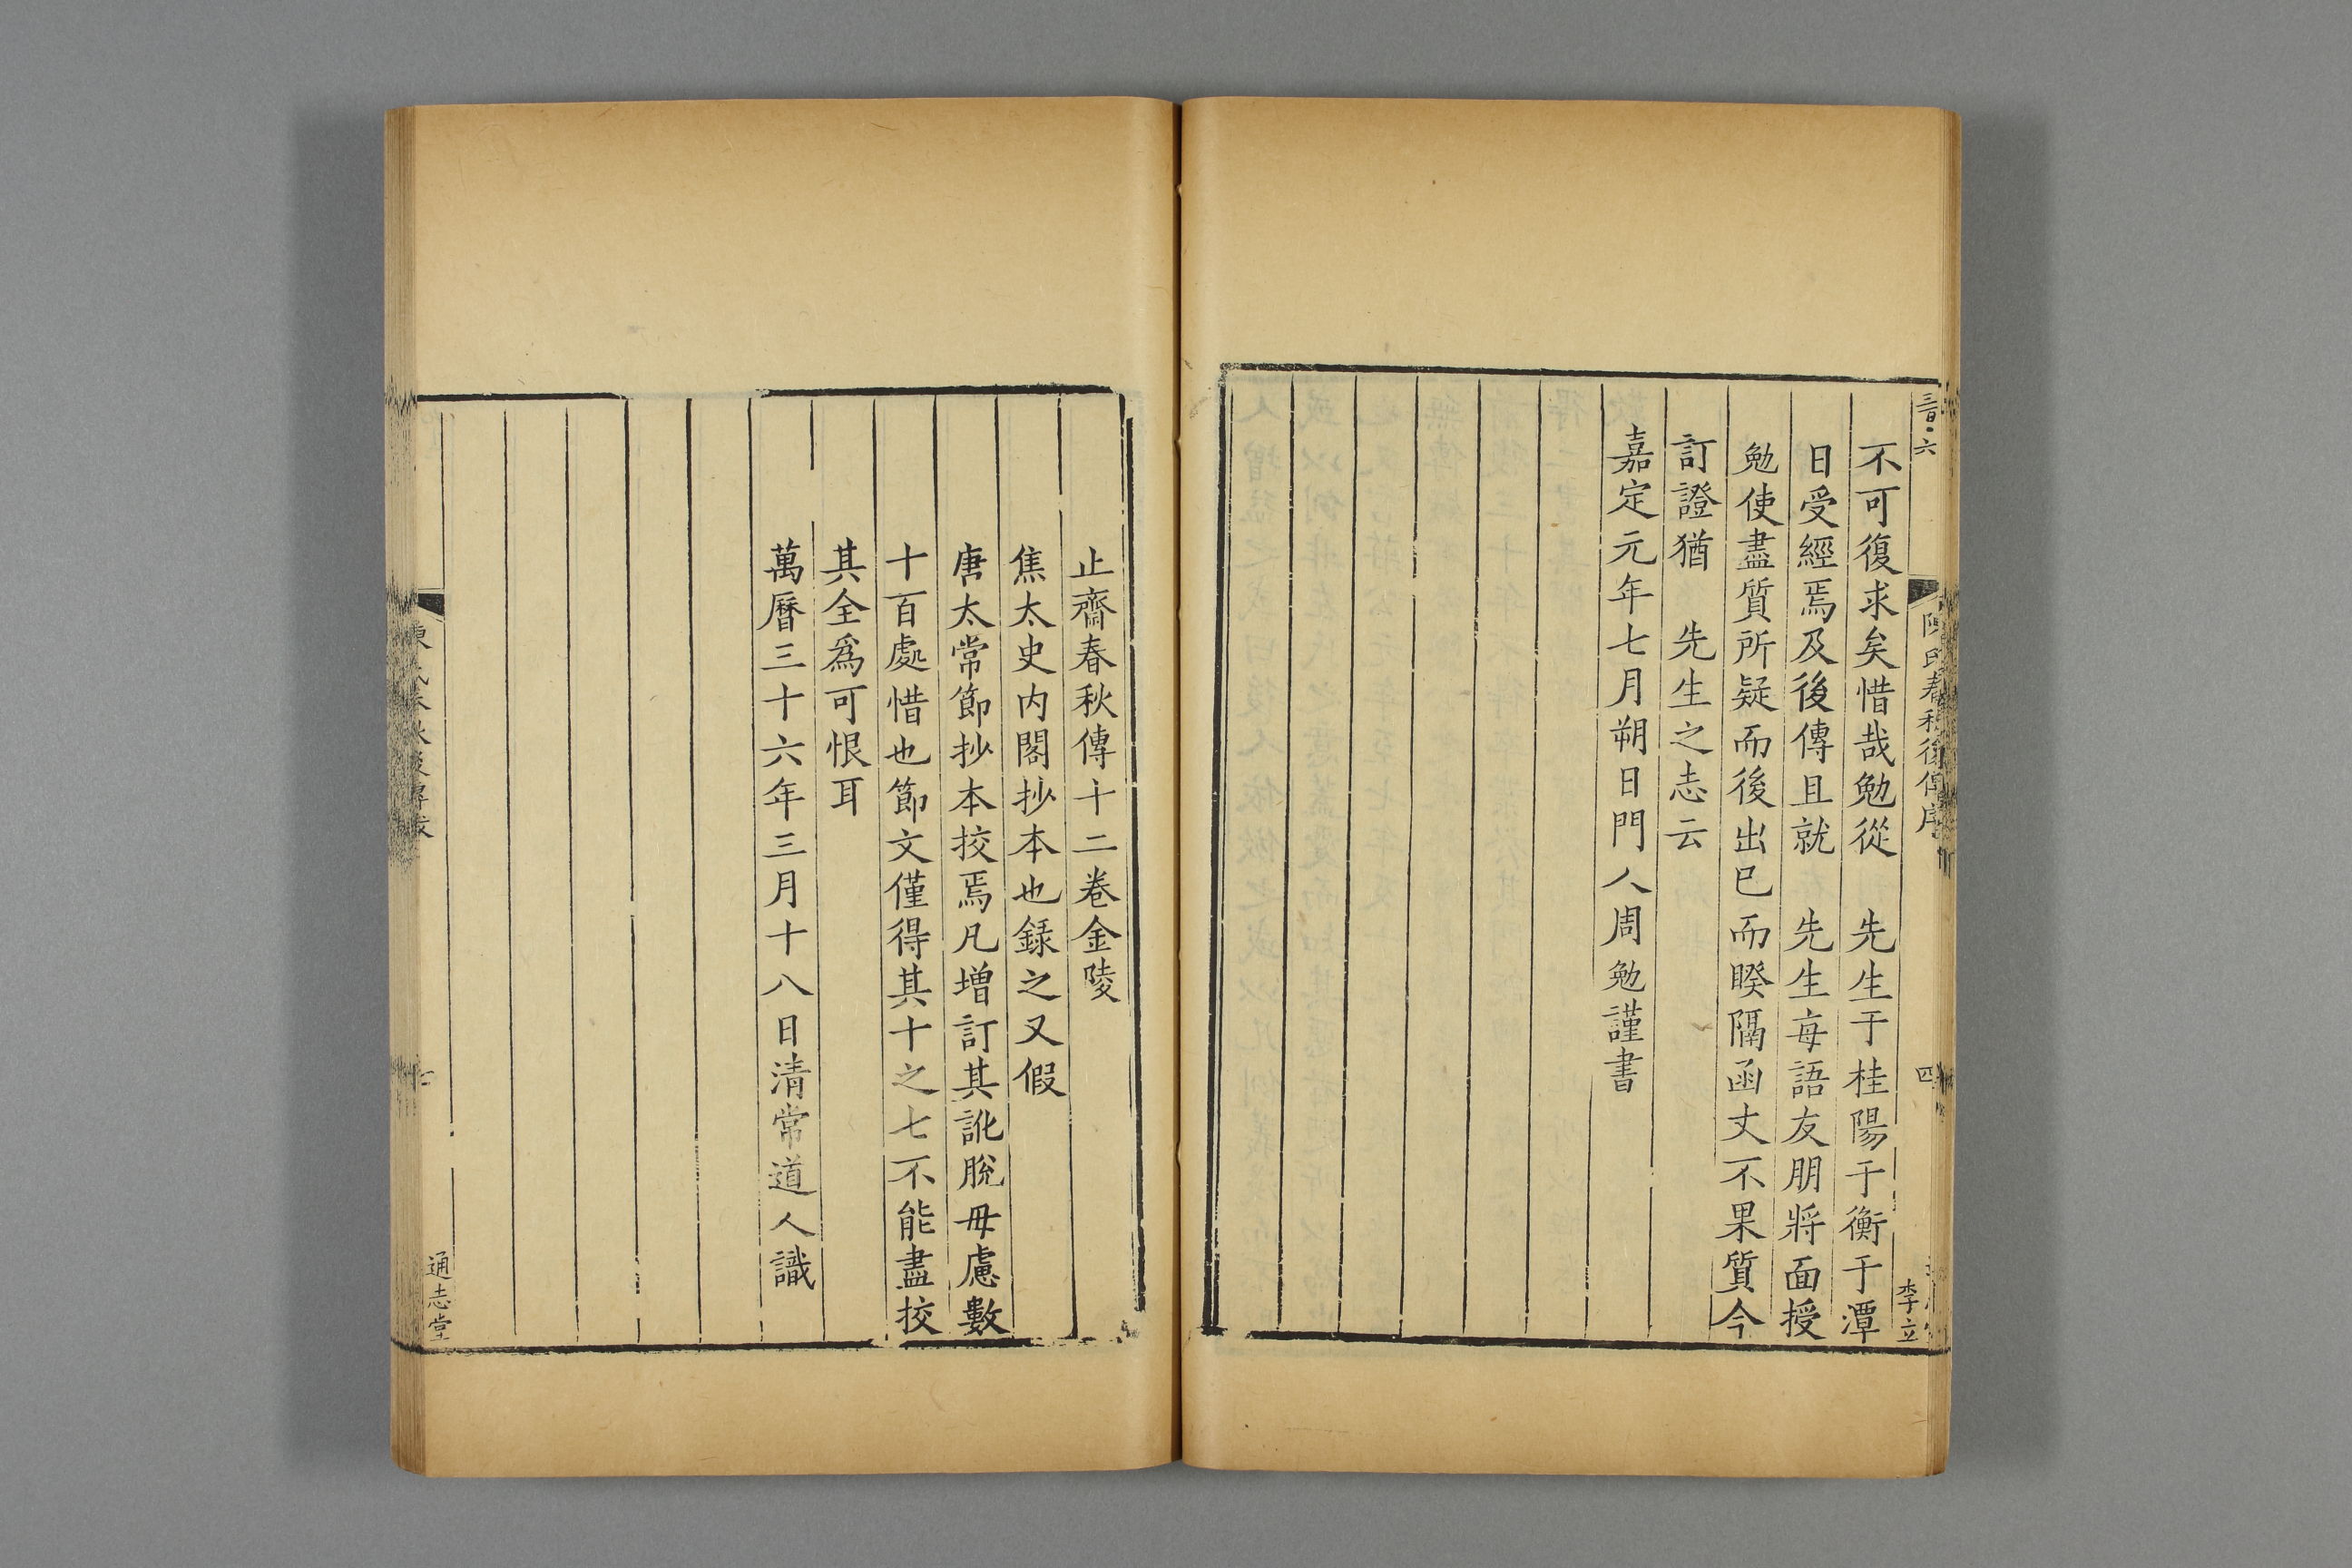 不可復求矣惜哉勉從　先生于桂陽于衡于潭
日受經焉及後傳且就　先生每語友朋將面授
勉使盡質所疑而後出已而睽隔函丈不果質今
訂證猶　先生之志云
嘉定元年七月朔日門人周勉謹書
三百·六
春秋後傳序
四
李立
止齋春秋傳十二卷金陵
焦太史内閣抄本也録之又假
唐太常節抄本挍焉凡增訂其訛脫毋慮數
十百處惜也節文僅得其十之七不能盡挍
其全爲可恨耳
萬曆三十六年三月十八日清常道人識
通志堂